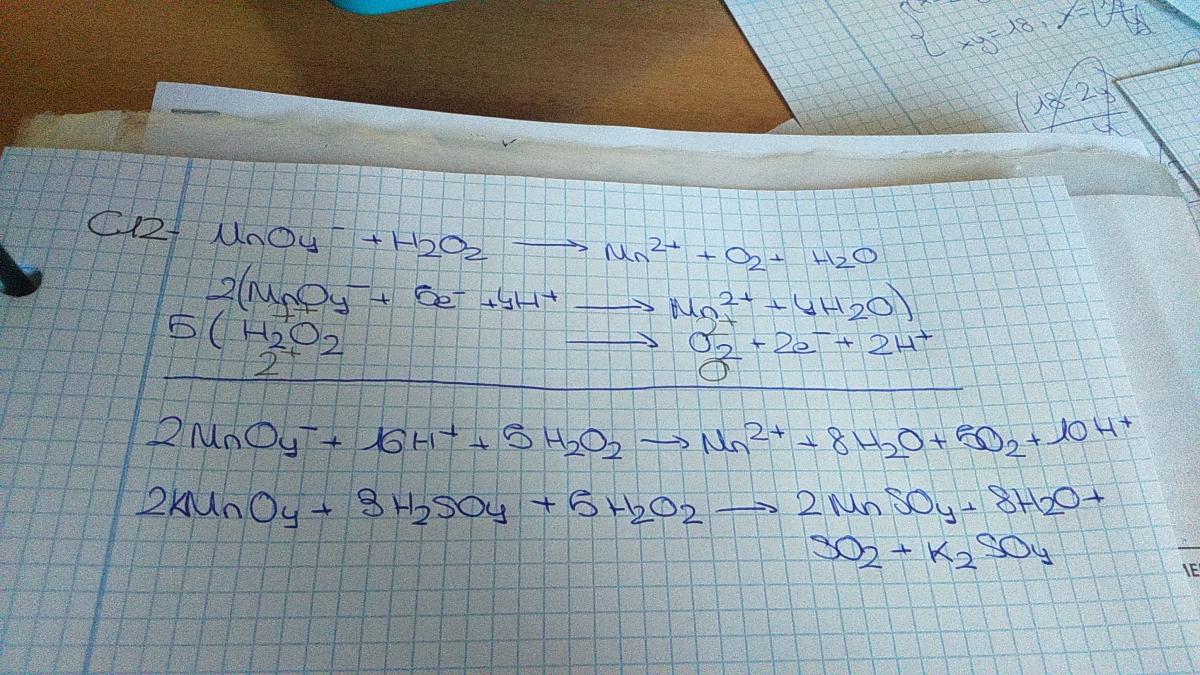 xy=18, 
18-2y
C12- MnO4⁻ + H2O2 → Mn²⁺ + O2 + H2O
2(MnO4⁻ + 5e⁻ + 4H⁺ → Mn²⁺ + 4H2O)
5(H2O2 → O2 + 2e⁻ + 2H⁺
2⁺ 0
2MnO4⁻ + 16H⁺ + 5H2O2 → Mn²⁺ + 8H2O + 5O2 + 10H⁺
2KMnO4 + 3H2SO4 + 5H2O2 → 2MnSO4 + 8H2O +
5O2 + K2SO4